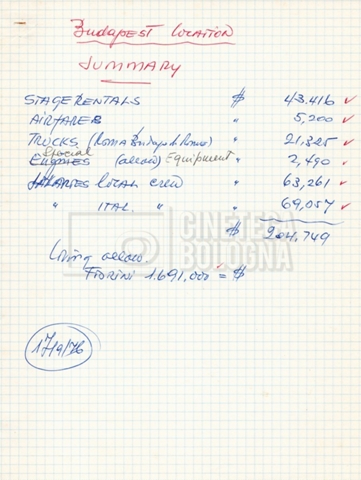 Budapest Location
SUMMARY
STAGE RENTALS $ 43.416 ✓
AIRFARES " 5,200 ✓
TRUCKS (ROMA Budapest Roma) " 21,325 ✓
Special
ENGINES (allow) Equipment " 2,490 ✓
SALARIES LOCAL CREW " 63,261 ✓
" ITAL. " " 69,057 ✓
$ 204,749
Living allow.
FIORINI 1.691,000 = $
17/9/76
CINETECA
BOLOGNA